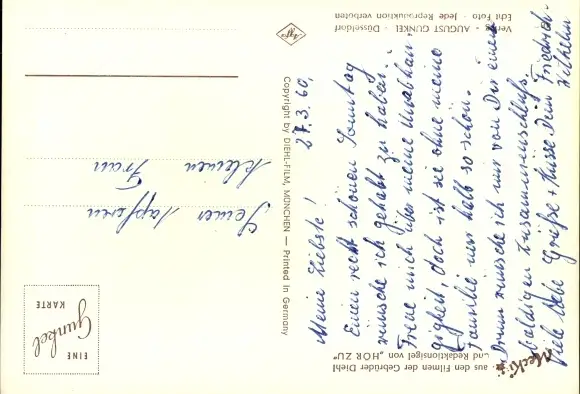 Mecki®
aus den Filmen der Gebrüder Diehl
und Redaktionsigel von „HÖR ZU"
27.3.60.
Meine Liebste!
Einen recht schönen Sonntag
wünsche ich gehabt zu haben.
Freue mich über meine Unabhän-
gigkeit, doch ist sie ohne meine
Familie nur halb so schön.
Drum wünsche ich nur von Dir einen
baldigen Zusammenschluß.
Viele liebe Grüße + Küsse Dein Friedrich
Wilhelm
Verlag · AUGUST GUNKEL · Düsseldorf
Echt Foto · Jede Reproduktion verboten
Agfa
Copyright by DIEHL-FILM, MÜNCHEN — Printed in Germany
EINE
Gunkel
KARTE
Seiner tapferen
kleinen Frau